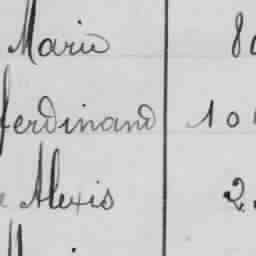 Marie 80
ferdinand 10
Alexis 2